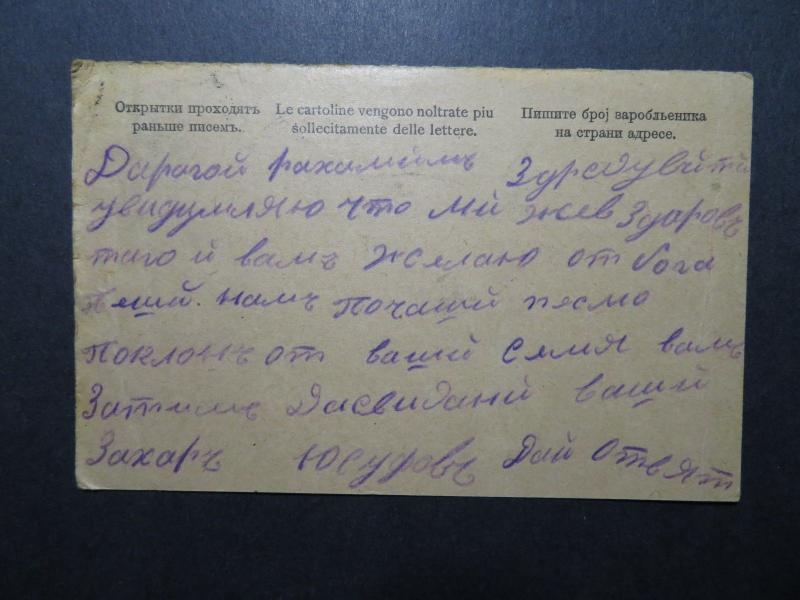 Открытки проходятъ
раньше писемъ.
Le cartoline vengono noltrate piu
sollecitamente delle lettere.
Пишите број заробљеника
на страни адресе.
Дарагой рахамимъ Здрсдувйти
увидумляю что мй жев Здаровъ
таго й вамъ желаю от бога
пеший. намъ почаший песмо
поклонъ от вашй семя вамъ
Затимъ Дасвиданй вашй
Захаръ Юсуфовъ Дай отвят